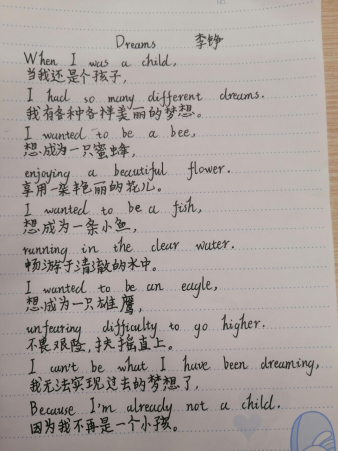 Dreams 李铮
When I was a child,
当我还是个孩子,
I had so many different dreams.
我有各种各样美丽的梦想。
I wanted to be a bee,
想成为一只蜜蜂,
enjoying a beautiful flower.
享用一朵艳丽的花儿。
I wanted to be a fish,
想成为一条小鱼,
running in the clear water.
畅游于清澈的水中。
I wanted to be an eagle,
想成为一只雄鹰,
unfearing difficulty to go higher.
不畏艰险,扶摇直上。
I can't be what I have been dreaming,
我无法实现过去的梦想了,
Because I'm already not a child.
因为我不再是一个小孩。